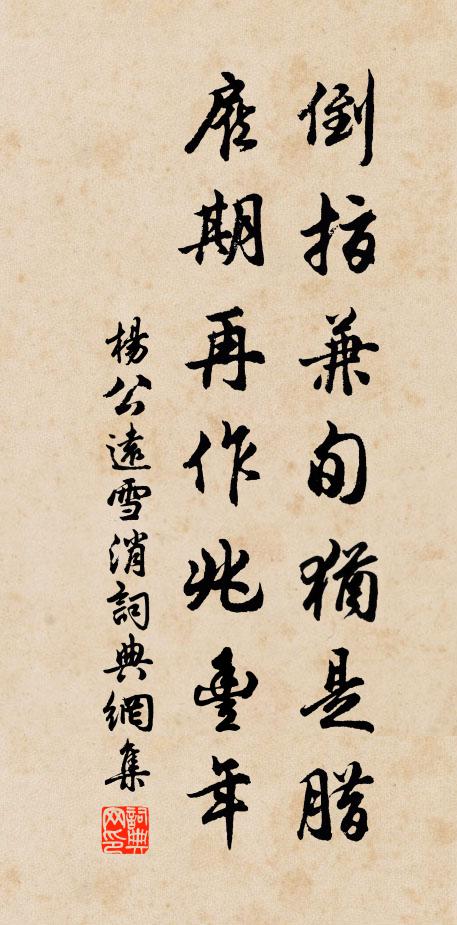 倒指兼旬猶是腊
應期再作兆豐年
楊公遠雪消詞典網集
詞典网印